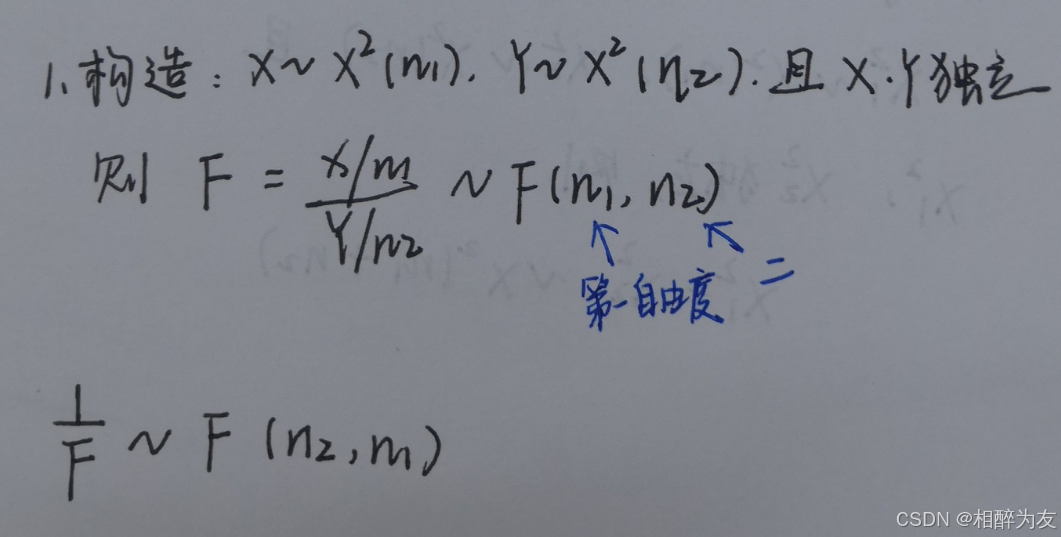 1. 构造：X~X²(n1). Y~X²(n2). 且 X.Y独立
则 F = (X/n1)/(Y/n2) ~ F(n1, n2)
第一自由度 二
1/F ~ F (n2, n1)
CSDN @相醉为友